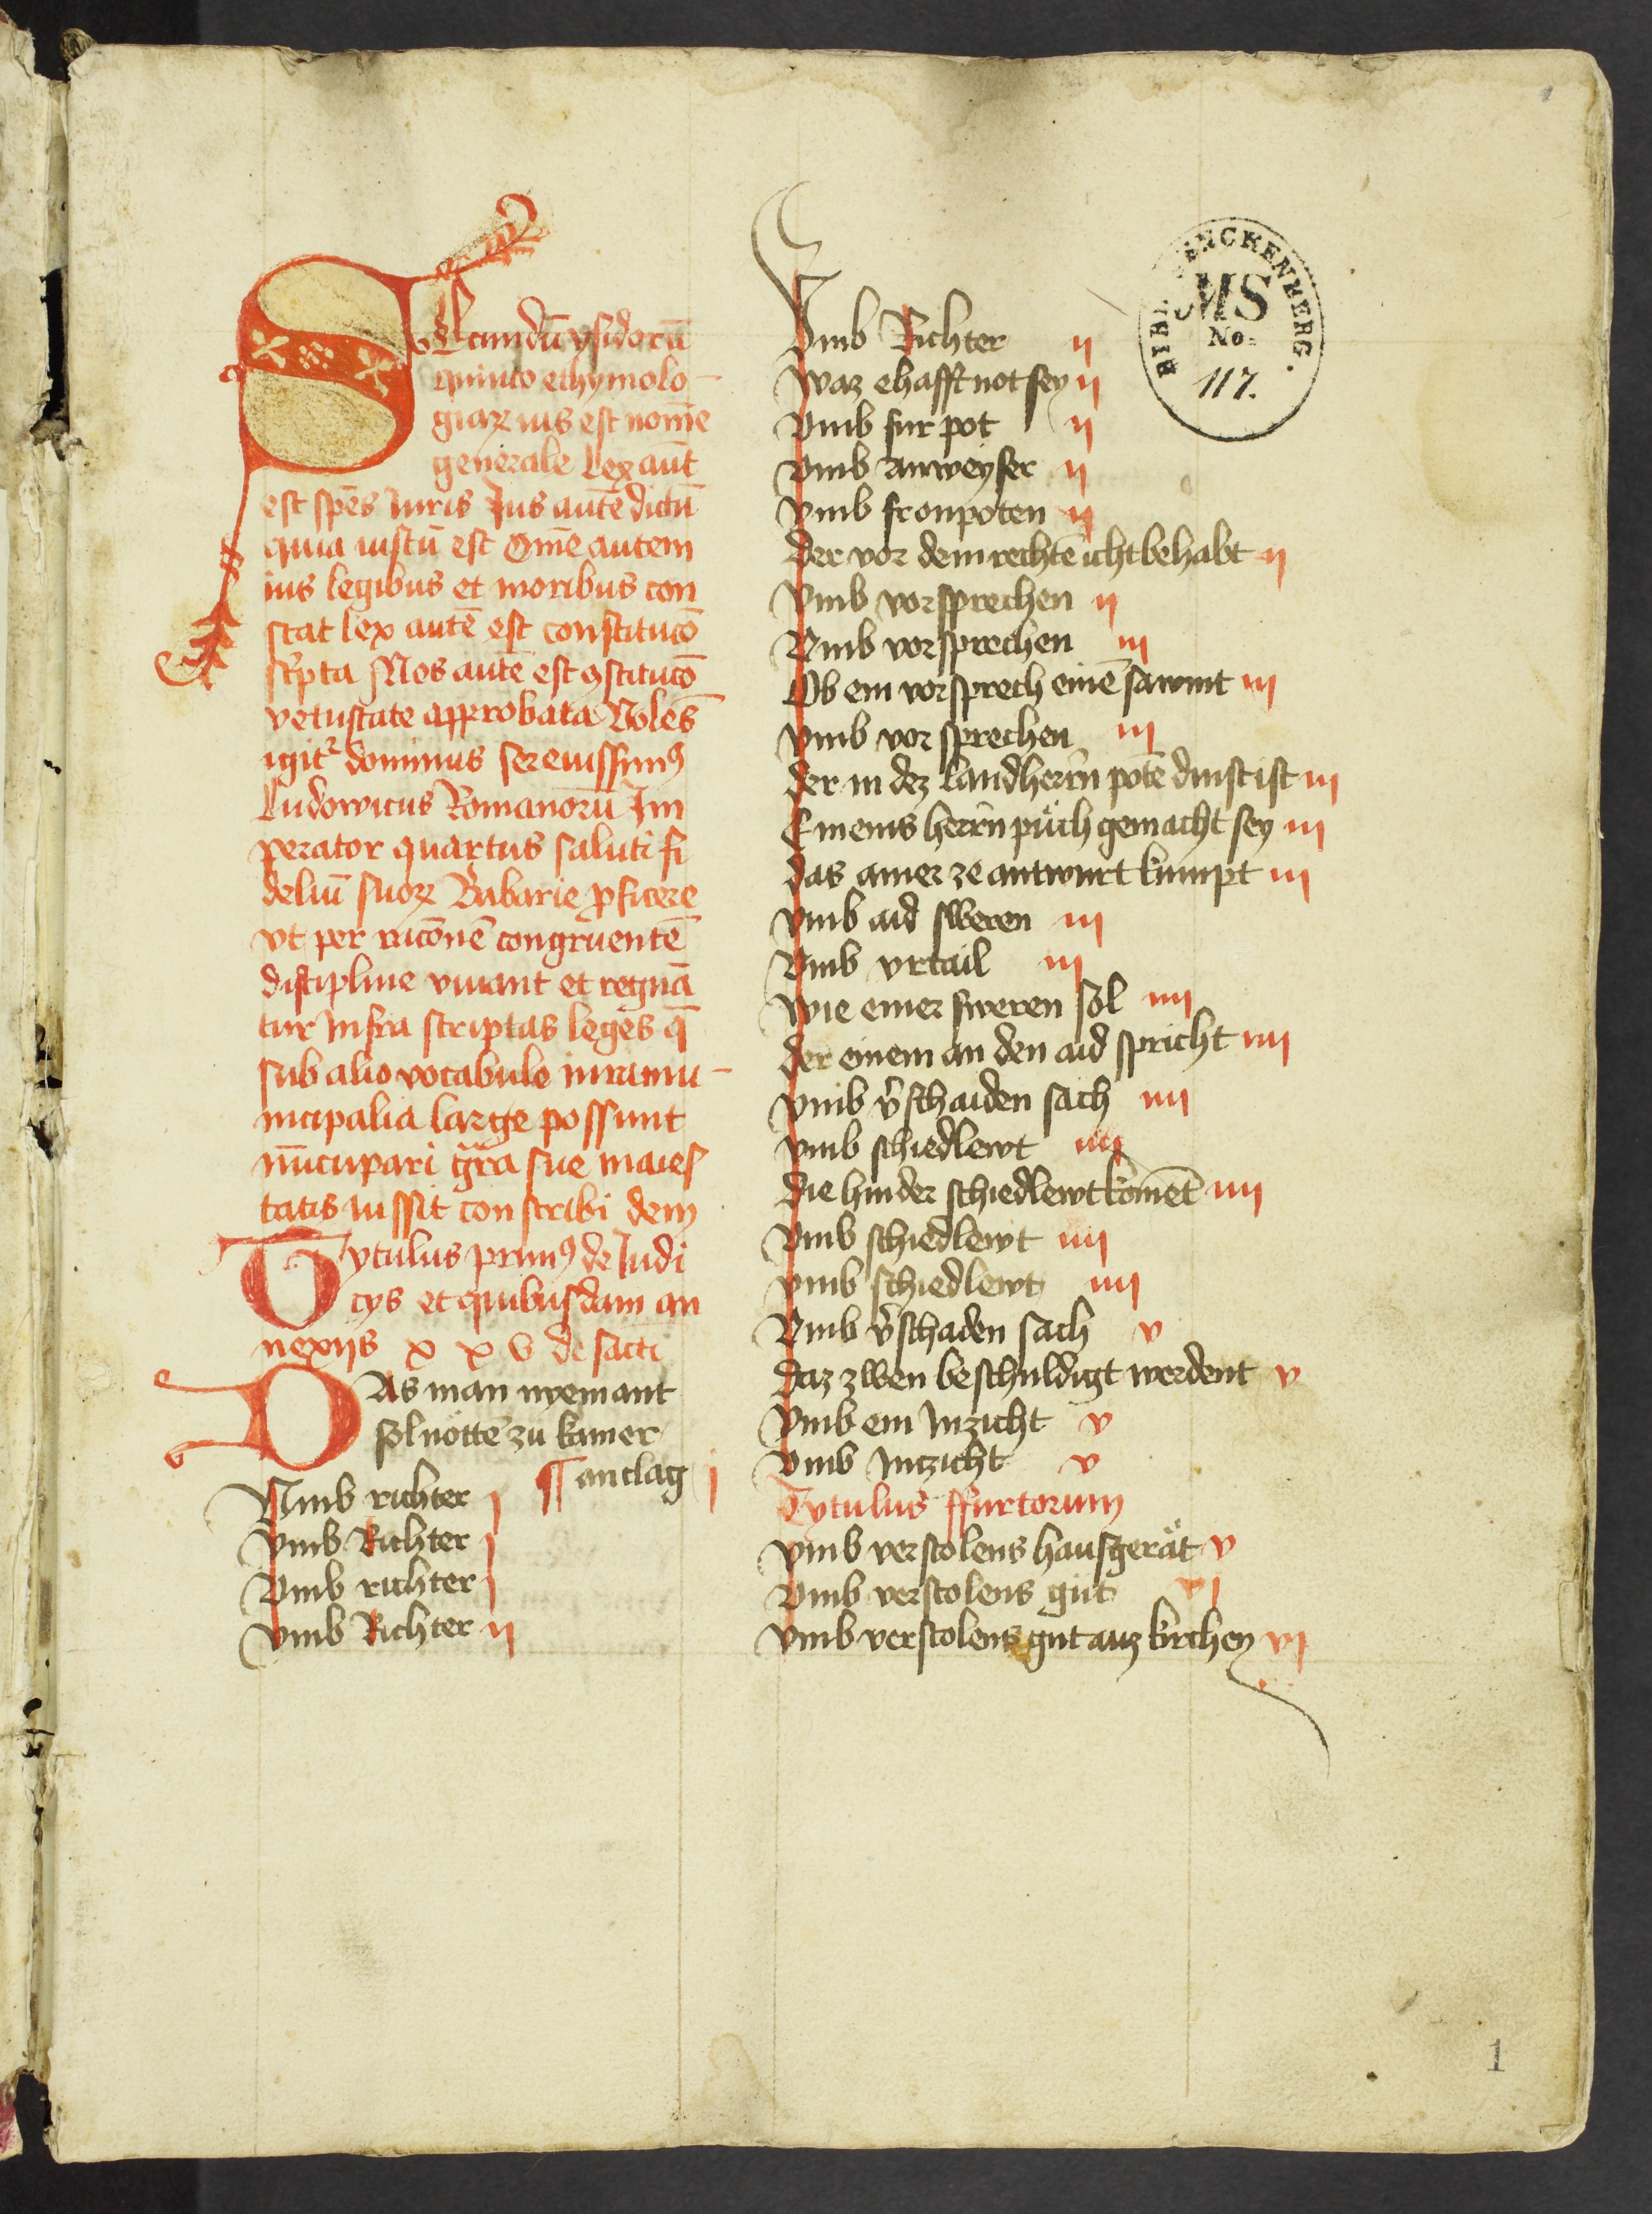 SEcundū ysidorū
quinto ethymolo-
giaꝝ ius est nom̄e
generale Lex aūt
est spēs Iuris Ius autē dictū
quia iustū est Om̄e autem
ius legibus et moribus con
stat lex autē est constitucō
scͥpta Mos autē est ꝯstitucō
vetustate approbata Volēs
igitᷣ dominus serenissimꝰ
Ludowicus Romanorū Im
perator quartus saluti fi
deliū suoꝝ Babarie ꝓficere
vt per racōnē congruentē
discipline viuant et regnā
tur Infra scriptas leges q̄
sub alio vocabulo iura mu-
nicipalia large possunt
nūcupari gr̄a sue maies
tatis iussit conscribi dem
Tytulus primꝰ de Iudi
cijs et quibusdam an
nexijs x x v de facti
DAs man nyemant
sol nöttē zu kainer
¶ anclag j
Vmb richter j
Vmb Richter j
Vmb richter j
Vmb Richter ij
Vmb Richter ij
Waz ehafft not sey ij
Vmb fur pot ij
Vmb anweyser ij
Vmb fronpoten ij
Der vor dem rechtē icht behabt ij
Vmb vorsprechen ij
Vmb vorsprechen iij
Ob ein vorsprech einē sawmt iij
Vmb vorsprechen iij
Der in dez landherrn̄ potē dinst ist iij
E meins herrn̄ püch gemacht sey iij
Das ainer ze antwurt kumpt iij
Vmb aid sweren iij
Vmb vrtail iij
Wie einer sweren sol iiij
Der einem an den aid spricht iiij
Vmb v̄schaiden sach iiij
Vmb schiedlewt iiij
Die hinder schiedlewt komēt iiij
Vmb schiedlewt iiij
Vmb schiedlewt iiij
Vmb v̄schaden sach v
Daz zwen beschuldigt werdent v
Vmb ein Inzicht v
Vmb Intzicht v
Tytulus ffurtorum
Vmb verstolens hausgerät v
Vmb verstolens gut vj
Vmb verstolens gut auz kirchen vj
BIBL. SENCKENBERG.
MS
No.
117.
1